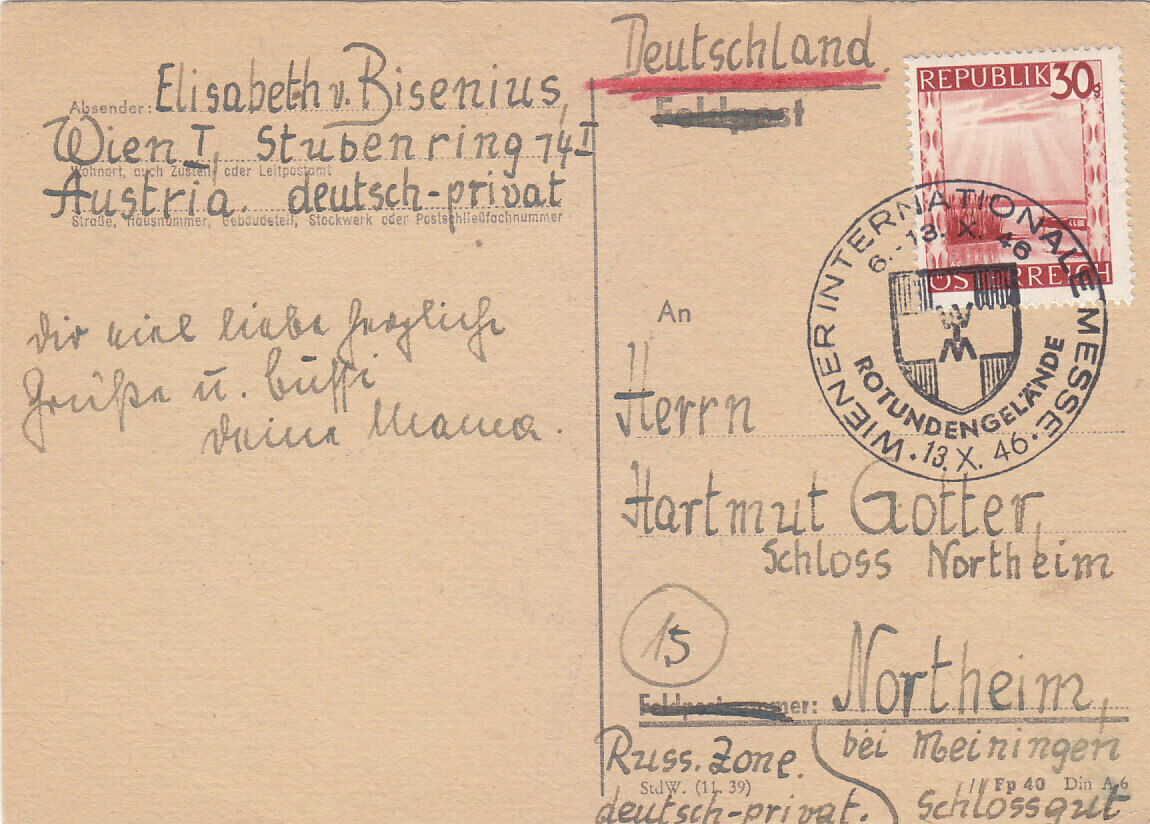 Absender: Elisabeth v. Bisenius,
Wien I, Stubenring 14 I
Wohnort, auch Zustell- oder Leitpostamt
Austria. deutsch-privat
Straße, Hausnummer, Gebäudeteil, Stockwerk oder Postschließfachnummer
Dir viel liebe herzliche
Grüße u. Bussi
Deine Mama.
Deutschland.
Feldpost
REPUBLIK 30 g
ÖSTERREICH
WIENER INTERNATIONALE MESSE
6.-13. X. 46
WIM
ROTUNDENGELÄNDE
13. X. 46
An
Herrn
Hartmut Gotter,
Schloss Northeim
15
Feldpostnummer: Northeim,
bei Meiningen
Russ. Zone.
StdW. (11. 39)
Fp 40 Din A 6
deutsch-privat. Schlossgut